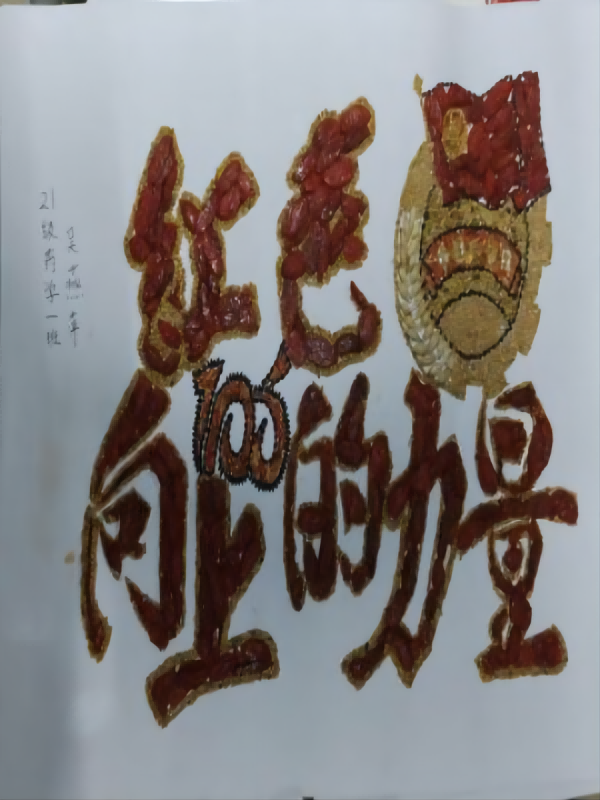 红色
100
向上的力量
21级药学一班